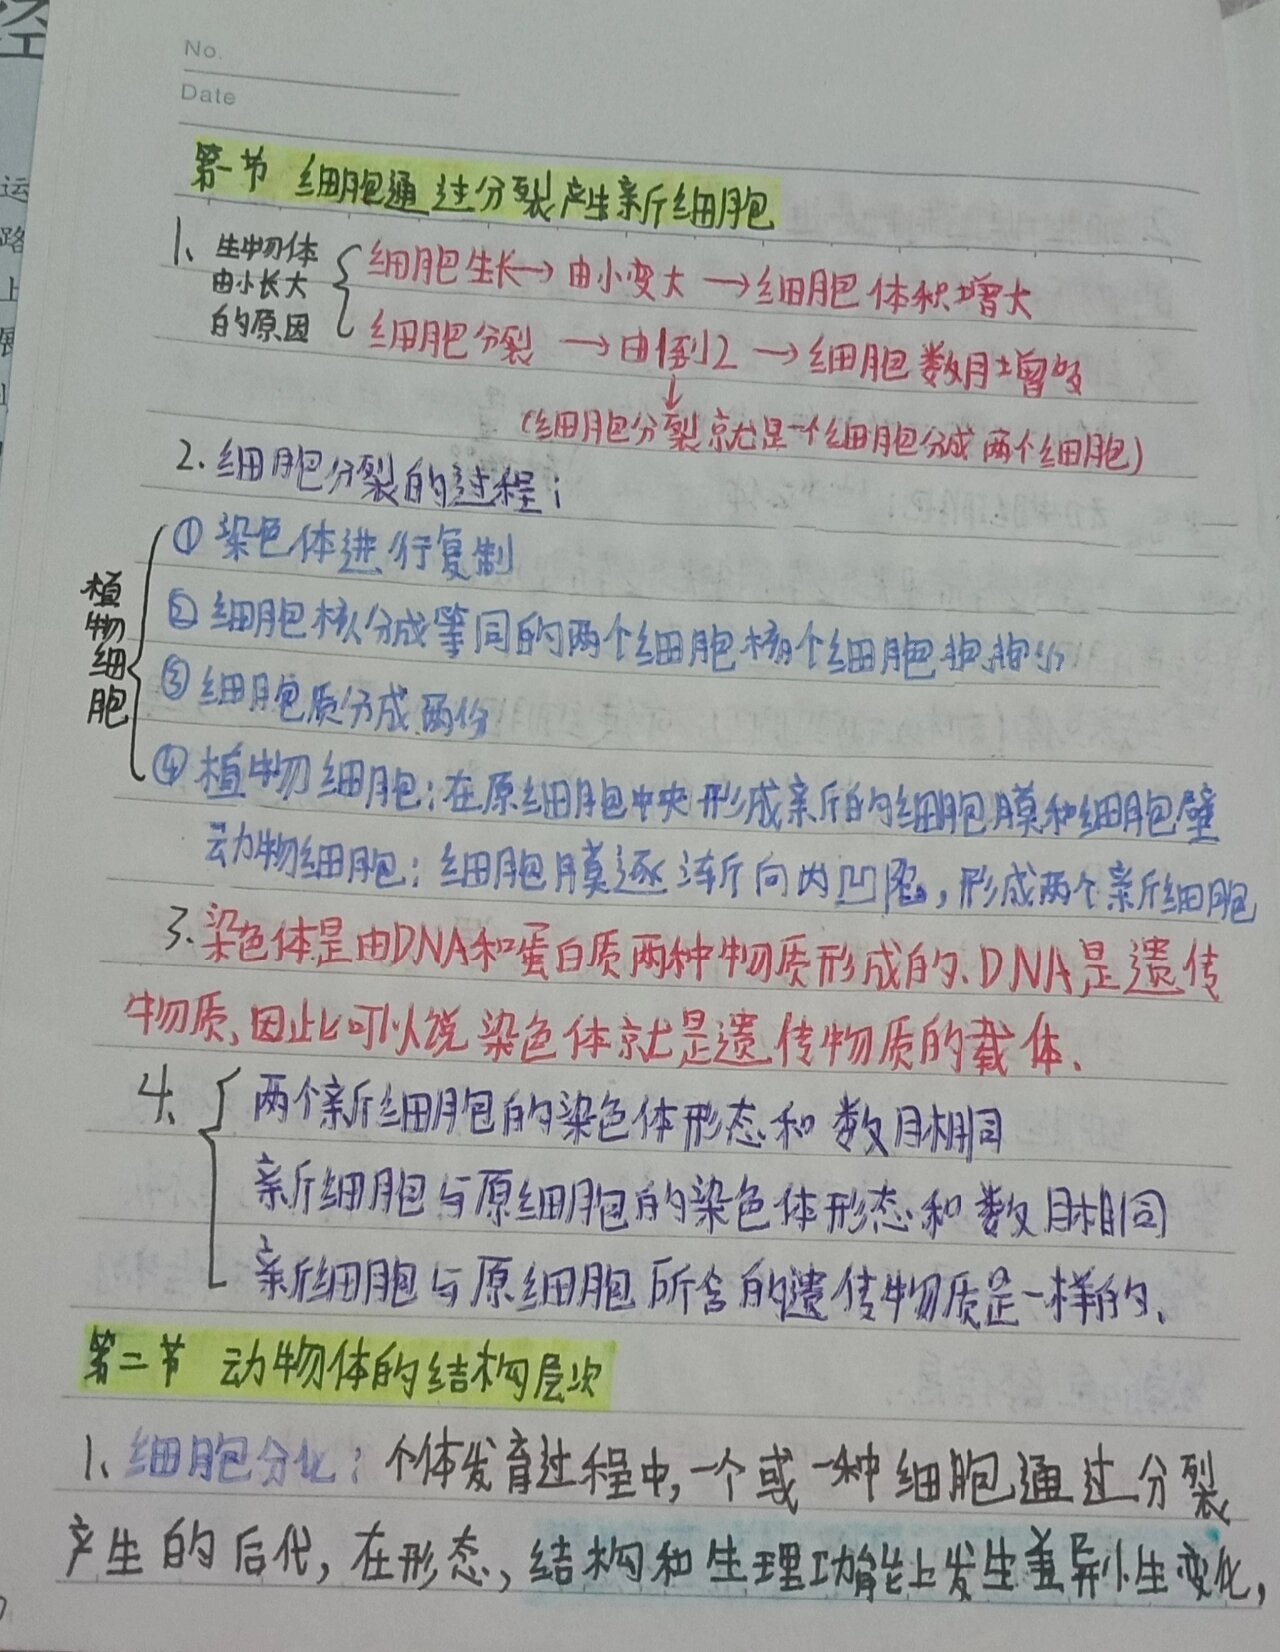 No.
Date
第一节 细胞通过分裂产生新细胞
1、生物体由小长大的原因
细胞生长→由小变大→细胞体积增大
细胞分裂→由1到2→细胞数目增多
↓
(细胞分裂就是一个细胞分成两个细胞)
2.细胞分裂的过程:
植物细胞
①染色体进行复制
②细胞核分成等同的两个细胞核
③细胞质分成两份
④植物细胞:在原细胞中央形成新的细胞膜和细胞壁
动物细胞:细胞膜逐渐向内凹陷,形成两个新细胞
3.染色体是由DNA和蛋白质两种物质形成的.DNA是遗传
物质,因此可以说染色体就是遗传物质的载体.
4、两个新细胞的染色体形态和数目相同
新细胞与原细胞的染色体形态和数目相同
新细胞与原细胞所含的遗传物质是一样的.
第二节 动物体的结构层次
1、细胞分化:个体发育过程中,一个或一种细胞通过分裂
产生的后代,在形态,结构和生理功能上发生差异性变化,